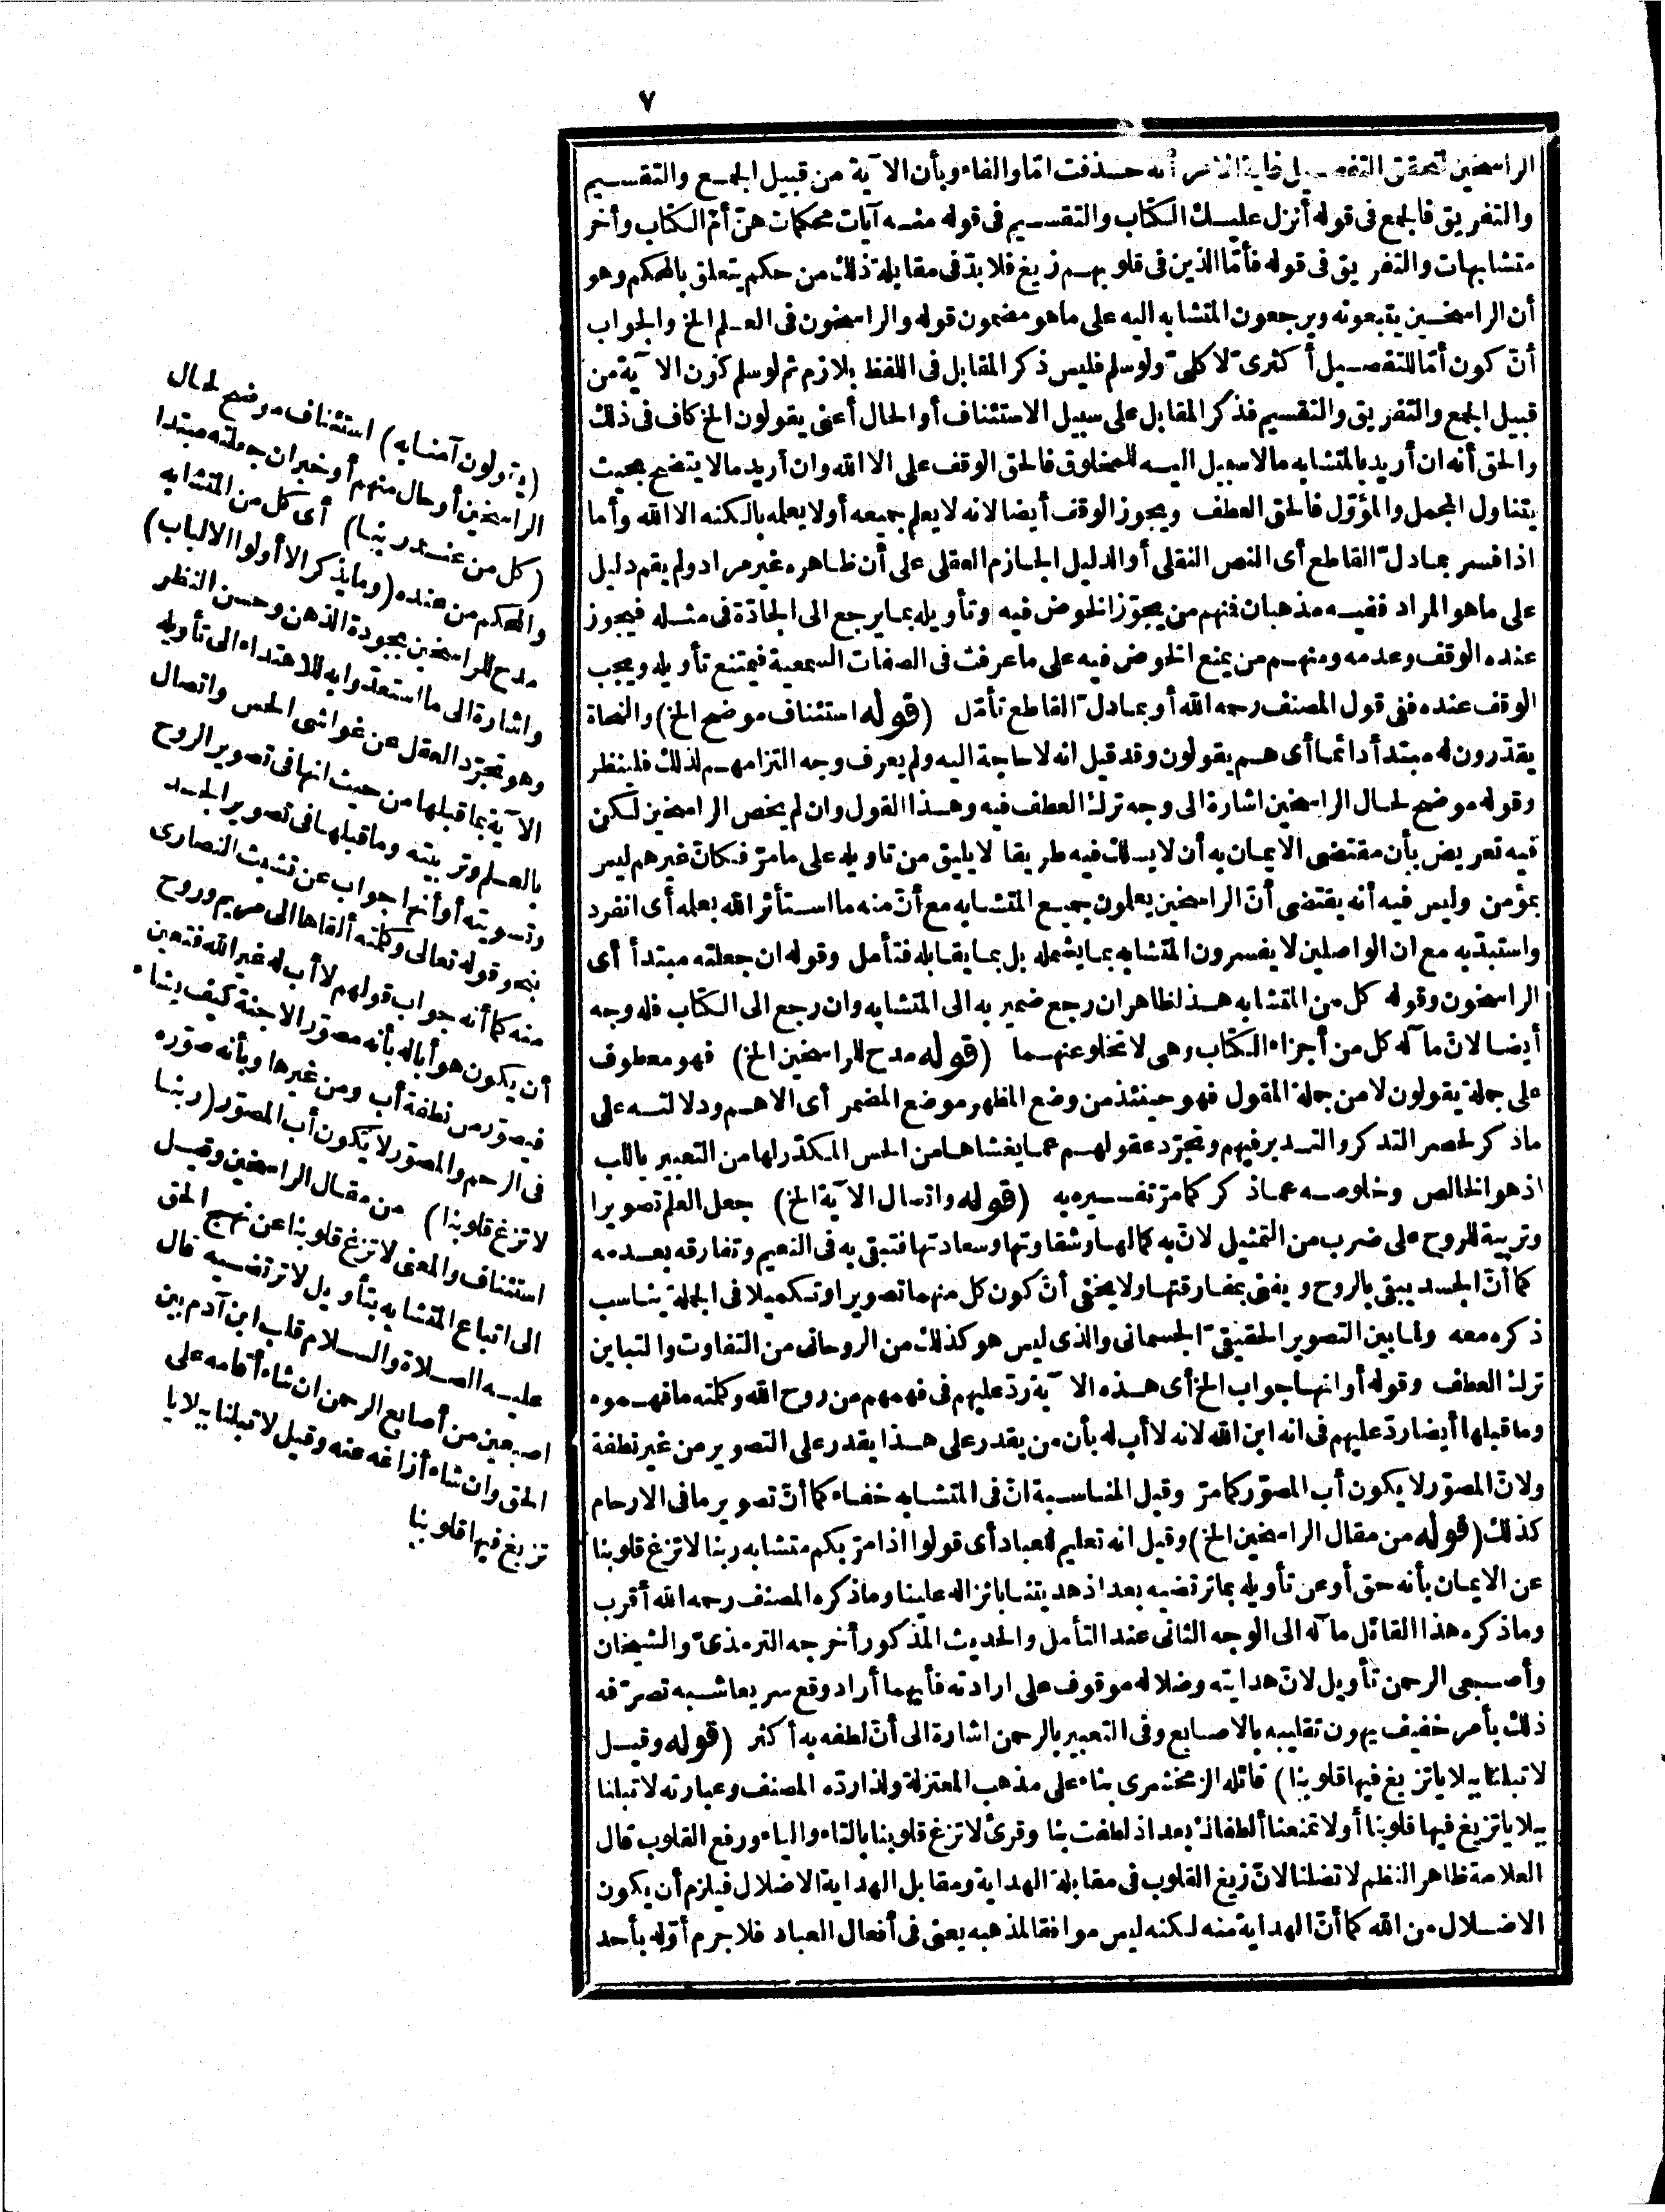 ٧
الراسخين تحقق التفصيل غاية الامر أنه حذفت امّا والفاء وبأن الآية من قبيل الجمع والتقسيم
والتفريق فالجمع فى قوله أنزل عليك الكتاب والتقسيم فى قوله منه آيات محكمات هنّ أمّ الكتاب وأخر
متشابهات والتفريق فى قوله فأمّا الذين فى قلوبهم زيغ فلا بدّ فى مقابلة ذلك من حكم يتعلق بالمحكم وهو
أن الراسخين يتبعونه ويرجعون المتشابه اليه على ما هو مضمون قوله والراسخون فى العلم الخ والجواب
أنّ كون أمّا للتفصيل أكثرىّ لا كلىّ ولو سلم فليس ذكر المقابل فى اللفظ بلازم ثم لو سلم كون الآية من
قبيل الجمع والتفريق والتقسيم فذكر المقابل على سبيل الاستئناف أو الحال أعنى يقولون الخ كاف فى ذلك
والحق أنه ان أريد بالمتشابه ما لا سبيل اليه للمخلوق فالحق الوقف على الا الله وان أريد ما لا يتضح بحيث
يتناول المجمل والمؤوّل فالحق العطف ويجوز الوقف أيضا لانه لا يعلم جميعه أو لا يعلمه بالكنه الا الله وأما
اذا فسر بما دلّ القاطع أى النص النقلى أو الدليل الجازم العقلى على أن ظاهره غير مراد ولم يقم دليل
على ما هو المراد ففيه مذهبان فمنهم من يجوّز الخوض فيه وتأويله بما يرجع الى الجادّة فى مثله فيجوز
عنده الوقف وعدمه ومنهم من يمنع الخوض فيه على ما عرفت فى الصفات السمعية فيمتنع تأويله ويجب
الوقف عنده ففى قول المصنف رحمه الله أو بما دلّ القاطع تأمّل (قوله استئناف موضح الخ) والنحاة
يقدّرون له مبتدأ دائما أى هم يقولون وقد قيل انه لا حاجة اليه ولم يعرف وجه التزامهم لذلك فلينظر
وقوله موضح لحال الراسخين اشارة الى وجه ترك العطف فيه وهذا القول وان لم يخص الراسخين لكن
فيه تعريض بأن مقتضى الايمان به أن لا يسلك فيه طريقا لا يليق من تاويله على ما مرّ فكانّ غيرهم ليس
بمؤمن وليس فيه أنه يقتضى أنّ الراسخين يعلمون جميع المتشابه مع أنّ منه ما استأثر الله بعلمه أى انفرد
واستبدّ به مع ان الواصلين لا يفسرون المتشابه بما يشمله بل بما يقابله فتأمل وقوله ان جعلته مبتدأ أى
الراسخون وقوله كل من المتشابه هذا ظاهر ان رجع ضمير به الى المتشابه وان رجع الى الكتاب فله وجه
أيضا لانّ مآله كل من أجزاء الكتاب وهى لا تخلو عنهما (قوله مدح للراسخين الخ) فهو معطوف
على جملة يقولون لا من جملة المقول فهو حينئذ من وضع المظهر موضع المضمر أى الاهم ودلالته على
ما ذكر لحصر التذكر والتدبر فيهم وتجرّد عقولهم عما يغشاها من الحس المكدّر لها من التعبير باللب
اذ هو الخالص وخلوصه عما ذكر كما مرّ تفسيره به (قوله واتصال الآية الخ) جعل العلم تصويرا
وتربية للروح على ضرب من التمثيل لانّ به كمالها وشقاوتها وسعادتها فتبقى به فى النعيم وتفارقه بعدمه
كما أنّ الجسد يبقى بالروح ويفنى بمفارقتها ولا يخفى أنّ كون كل منهما تصويرا وتكميلا فى الجملة يناسب
ذكره معه ولما بين التصوير الحقيقىّ الجسمانى والذى ليس هو كذلك من الروحانى من التفاوت والتباين
ترك العطف وقوله أو انها جواب الخ أى هذه الآية ردّ عليهم فى فهمهم من روح الله وكلمته ما فهموه
وما قبلها أيضا ردّ عليهم فى انه ابن الله لانه لا أب له بأن من يقدر على هذا يقدر على التصوير من غير نطفة
ولانّ المصوّر لا يكون أب المصوّر كما مرّ وقيل المناسبة انّ فى المتشابه خفاء كما أنّ تصوير ما فى الارحام
كذلك (قوله من مقال الراسخين الخ) وقيل انه تعليم للعباد أى قولوا اذا مرّ بكم متشابه ربنا لا تزغ قلوبنا
عن الايمان بأنه حق أو عن تأويله بما ترتضيه بعد اذ هديتنا بانزاله علينا وما ذكره المصنف رحمه الله أقرب
وما ذكره هذا القائل مآله الى الوجه الثانى عند التأمل والحديث المذكور أخرجه الترمذىّ والشيخان
وأصبعى الرحمن تأويل لانّ هدايته وضلاله موقوف على ارادته فأيهما أراد وقع سريعا شبه تصرّفه
ذلك بأمر خفيف يهون تقليبه بالاصابع وفى التعبير بالرحمن اشارة الى أنّ لطفه به أكثر (قوله وقيل
لا تبلنا ببلايا تزيغ فيها قلوبنا) قائله الزمخشرى بناء على مذهب المعتزلة ولذا ردّه المصنف وعبارته لا تبلنا
ببلايا تزيغ فيها قلوبنا أو لا تمنعنا ألطافك بعد اذ لطفت بنا وقرئ لا تزغ قلوبنا بالتاء والياء ورفع القلوب قال
العلامة ظاهر النظم لا تضلنا لانّ زيغ القلوب فى مقابلة الهداية ومقابل الهداية الاضلال فيلزم أن يكون
الاضلال من الله كما أنّ الهداية منه لكنه ليس موافقا لمذهبه يعنى فى أفعال العباد فلا جرم أوّله بأحد
(يقولون آمنا به) استئناف موضح لحال
الراسخين أو حال منهم أو خبر ان جعلته مبتدا
(كل من عند ربنا) أى كل من المتشابه
والمحكم من عنده (وما يذكر الا أولوا الالباب)
مدح للراسخين بجودة الذهن وحسن النظر
واشارة الى ما استعدّوا به للاهتداء الى تأويله
وهو تجرّد العقل عن غواشى الحس واتصال
الآية بما قبلها من حيث انها فى تصوير الروح
بالعلم وتربيته وما قبلها فى تصوير الجسد
وتسويته أو أنها جواب عن تشبث النصارى
بنحو قوله تعالى وكلمته ألقاها الى مريم وروح
منه كما أنه جواب قولهم لا أب له غير الله فتعين
أن يكون هو أباه بأنه مصوّر الاجنة كيف يشاء
فيصوّر من نطفة أب ومن غيرها وبأنه صوّره
فى الرحم والمصوّر لا يكون أب المصوّر (ربنا
لا تزغ قلوبنا) من مقال الراسخين وقيل
استئناف والمعنى لا تزغ قلوبنا عن نهج الحق
الى اتباع المتشابه بتأويل لا ترتضيه قال
عليه الصلاة والسلام قلب ابن آدم بين
اصبعين من أصابع الرحمن ان شاء أقامه على
الحق وان شاء أزاغه عنه وقيل لا تبلنا ببلايا
تزيغ فيها قلوبنا